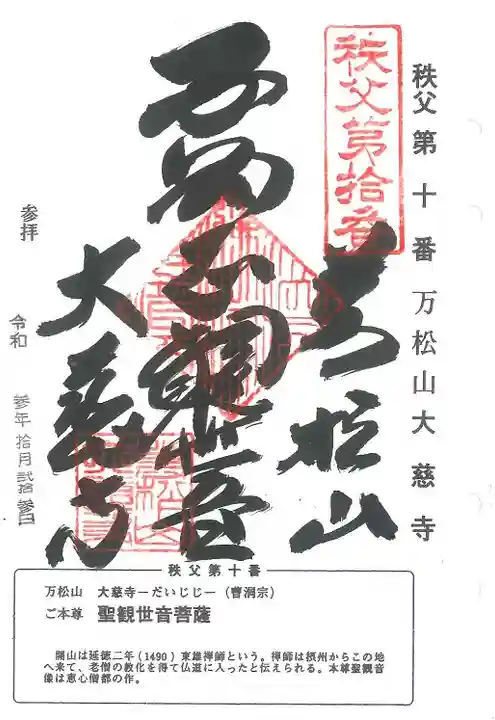 秩父第十番万松山大慈寺
秩父第拾番
万松山
大慈寺
参拝
令和
参年拾月弐拾参日
秩父第十番
万松山 大慈寺−だいじじ−(曹洞宗)
ご本尊 聖観世音菩薩
開山は延徳二年(1490)東雄禅師という。禅師は摂州からこの地
へ来て、老僧の教化を得て仏道に入ったと伝えられる。本尊聖観音
像は恵心僧都の作。